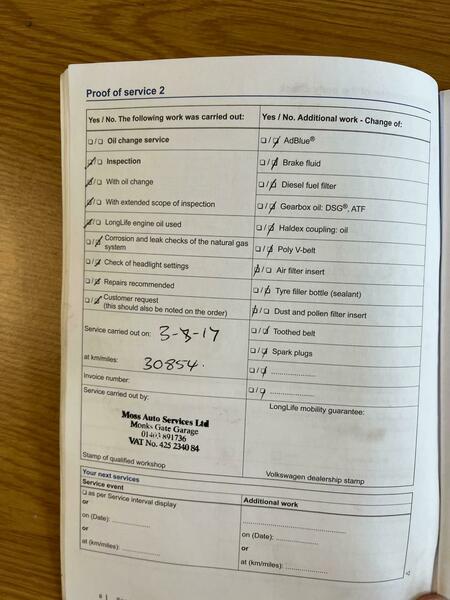 Proof of service 2
Yes / No. The following work was carried out:
❑/❑ Oil change service
❑/❑ Inspection
❑/❑ With oil change
❑/❑ With extended scope of inspection
❑/❑ LongLife engine oil used
❑/❑ Corrosion and leak checks of the natural gas
system
❑/❑ Check of headlight settings
❑/❑ Repairs recommended
❑/❑ Customer request
(this should also be noted on the order)
Service carried out on: 3-8-17
at km/miles: 30854.
Invoice number:
Service carried out by:
Moss Auto Services Ltd
Monks Gate Garage
01403 891736
VAT No. 425 2340 84
Stamp of qualified workshop
Yes / No. Additional work - Change of:
❑/❑ AdBlue®
❑/❑ Brake fluid
❑/❑ Diesel fuel filter
❑/❑ Gearbox oil: DSG®, ATF
❑/❑ Haldex coupling: oil
❑/❑ Poly V-belt
❑/❑ Air filter insert
❑/❑ Tyre filler bottle (sealant)
❑/❑ Dust and pollen filter insert
❑/❑ Toothed belt
❑/❑ Spark plugs
❑/❑ ....................
❑/❑ ....................
LongLife mobility guarantee:
Volkswagen dealership stamp
Your next services
Service event
❑ as per Service interval display
or
on (Date): ....................
or
at (km/miles): ....................
Additional work
........................................
on (Date): ....................
or
at (km/miles): ....................